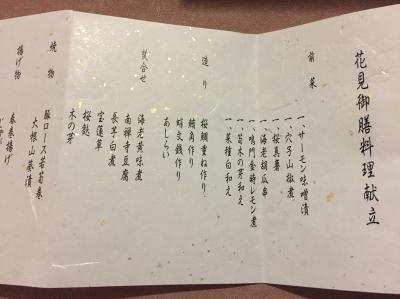 花見御膳料理献立
前菜
一、サーモン味噌漬
一、穴子山椒煮
一、桜真薯
一、海老胡瓜串
一、鳴門金時レモン煮
一、筍木の芽和え
一、菜種白和え
造り
桜鯛重ね作り
鮪角作り
烏文銭作り
あしらい
炊合せ
海老黄味煮
南禅寺豆腐
長芋白煮
宝蓮草
桜麩
木の芽
焼物
豚ロース若筍巻
大根山葵漬
揚げ物
春巻揚げ